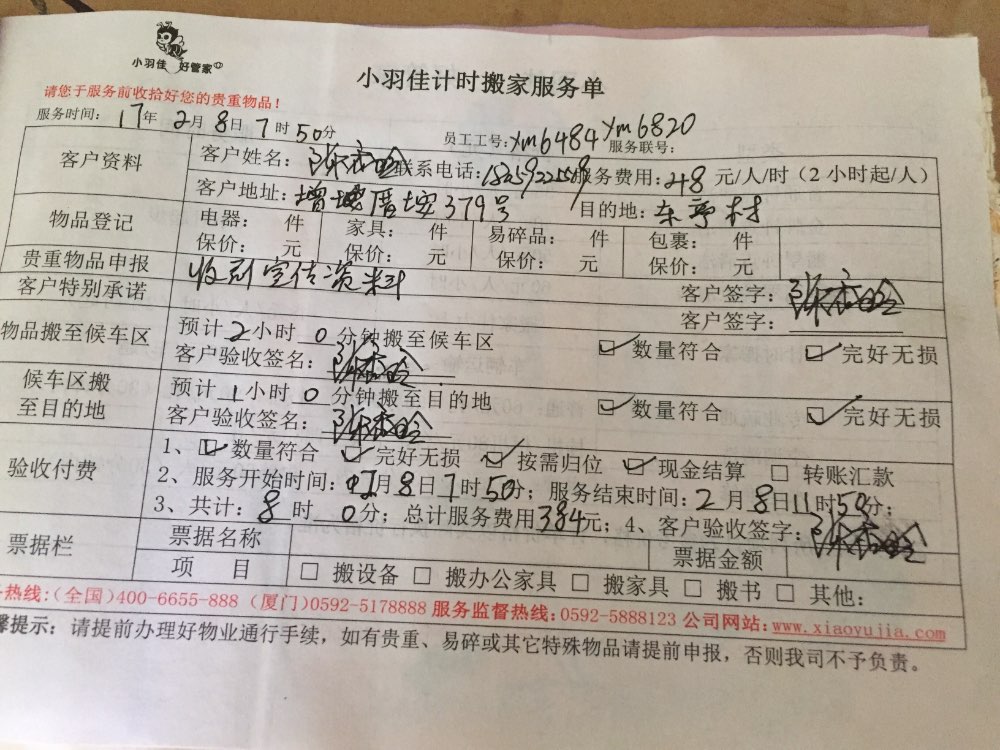 小羽佳 好管家
小羽佳计时搬家服务单
请您于服务前收拾好您的贵重物品！
服务时间：17年2月8日7时50分 员工工号：ym6484 ym6820 服务联号：
客户资料 客户姓名： 联系电话： 服务费用：48元/人/时（2小时起/人）
客户地址：增 厝垵379号 目的地：东亭村
物品登记 电器： 件 家具： 件 易碎品： 件 包裹： 件
保价： 元 保价： 元 保价： 元 保价： 元
贵重物品申报 收到宣传资料 客户签字：
客户特别承诺 客户签字：
物品搬至候车区 预计2小时0分钟搬至候车区 ☑数量符合 ☑完好无损
客户验收签名：
候车区搬至目的地 预计1小时0分钟搬至目的地 ☑数量符合 ☑完好无损
客户验收签名：
验收付费 1、☑数量符合 ☑完好无损 ☑按需归位 ☑现金结算 □转账汇款
2、服务开始时间：2月8日7时50分；服务结束时间：2月8日11时50分；
3、共计：8时0分；总计服务费用384元；4、客户验收签字：
票据栏 票据名称 票据金额
项 目 □搬设备 □搬办公家具 □搬家具 □搬书 □其他：
热线：（全国）400-6655-888（厦门）0592-5178888 服务监督热线：0592-5888123 公司网站：www.xiaoyujia.com
馨提示：请提前办理好物业通行手续，如有贵重、易碎或其它特殊物品请提前申报，否则我司不予负责。